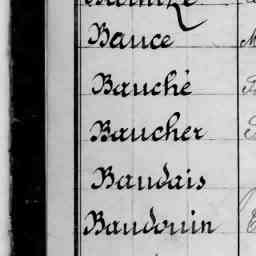 Bauce
Bauché
Baucher
Baudais
Baudouin